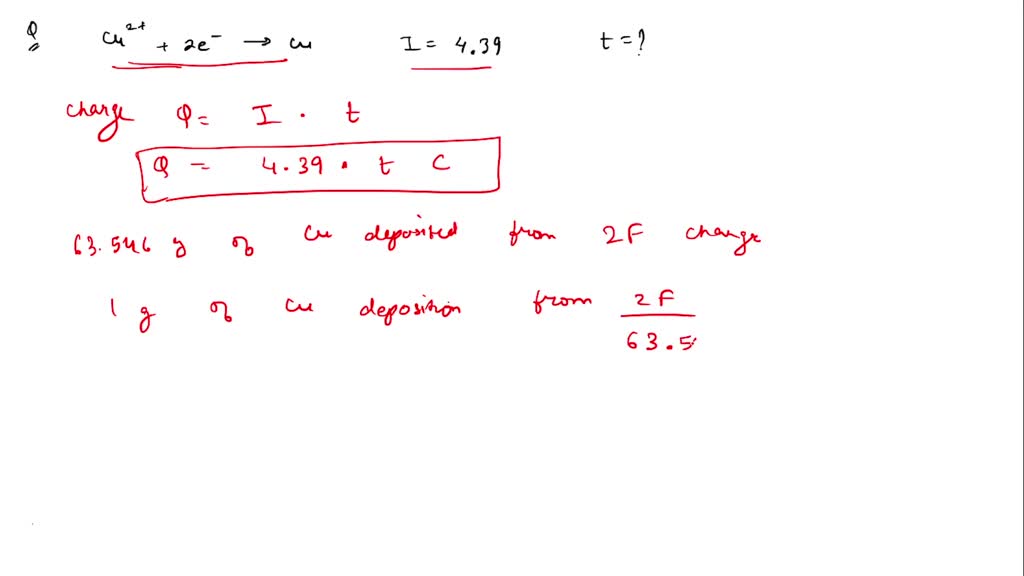 Q Cu²⁺ + 2e⁻ → Cu I = 4.39 t = ?
charge Q = I · t
Q = 4.39 · t C
63.546 g of Cu deposited from 2F charge
1 g of Cu deposition from 2F / 63.5